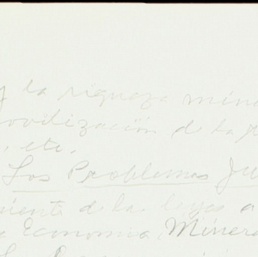 y la riqueza mine
ovilización de la
, etc.
Los Problemas Ju
miento de la leyes a
Economia Minera